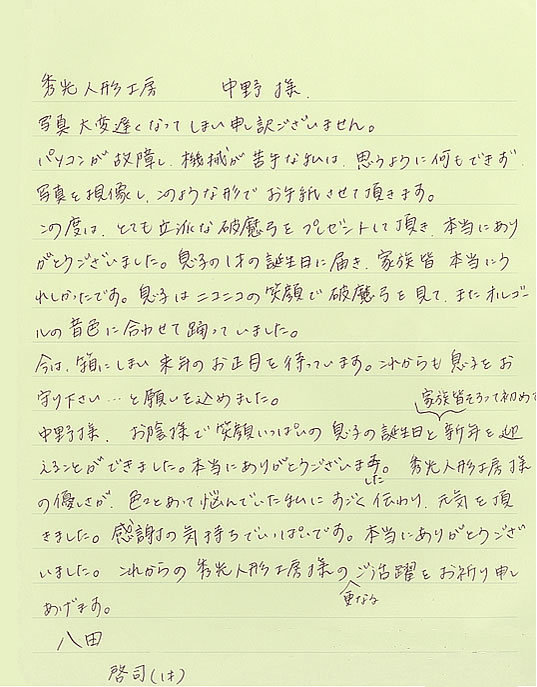 秀光人形工房　　中野様
写真大変遅くなってしまい申し訳ございません。
パソコンが故障し、機械が苦手な私は、思うように何もできず
写真を現像し、このような形でお手紙させて頂きます。
この度は、とても立派な破魔弓をプレゼントして頂き、本当にあり
がとうございました。息子の1才の誕生日に届き、家族皆本当にう
れしかったです。息子はニコニコの笑顔で破魔弓を見て、またオルゴー
ルの音色に合わせて踊っていました。
今は、箱にしまい来年のお正月を待っています。これからも息子をお
守り下さい…と願いを込めました。
家族皆そろって初めて
中野様、お陰様で笑顔いっぱいの息子の誕生日と新年を迎
えることができました。本当にありがとうございました。秀光人形工房様
の優しさが、色々とあって悩んでいた私にすごく伝わり、元気を頂
きました。感謝の気持ちでいっぱいです。本当にありがとうござ
いました。これからの秀光人形工房様のご活躍をお祈り申し
重なる
あげます。
八田
啓司(1才)